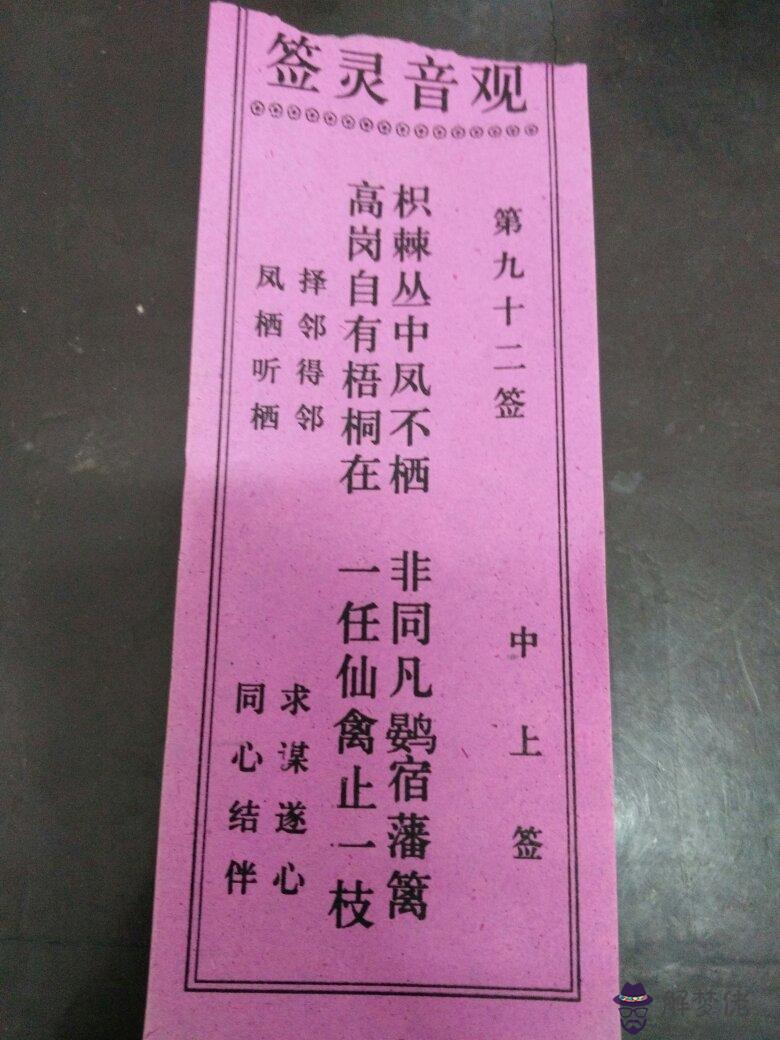 观音灵签
第九十二签
中上签
枳棘丛中凤不栖 非同凡鹦宿藩篱
高岗自有梧桐在 一任仙禽止一枝
择邻得邻 求谋遂心
凤栖听栖 同心结伴
解梦佬